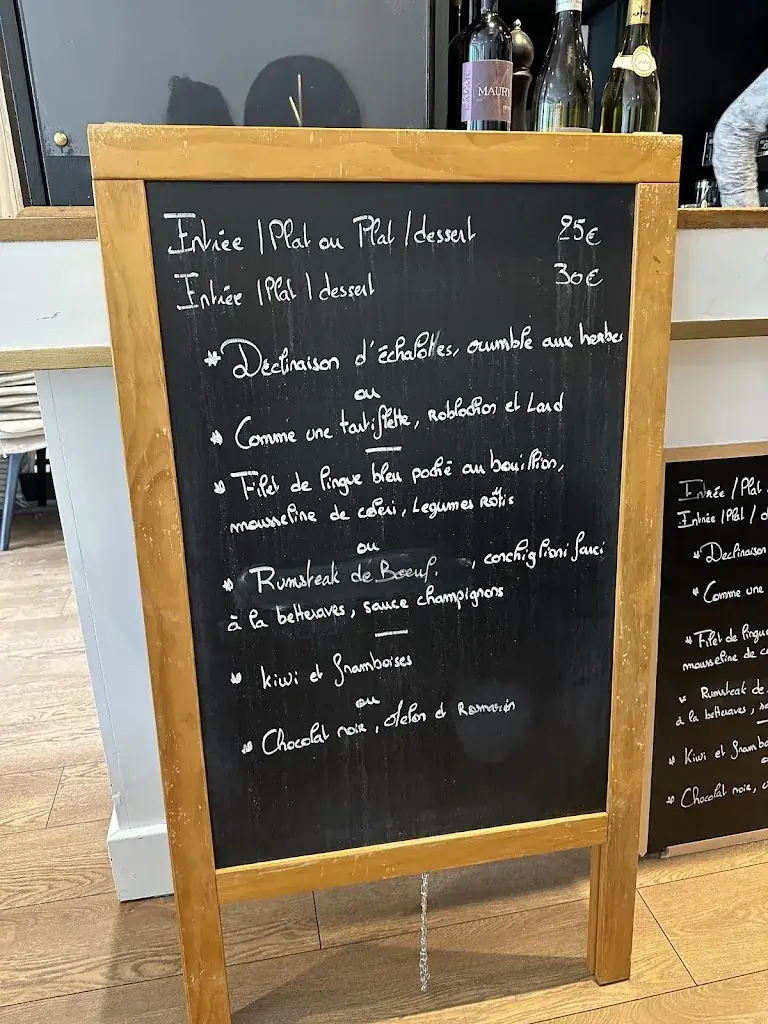 MAURY
Entrée / Plat ou Plat / dessert 25€
Entrée / Plat / dessert 30€
* Déclinaison d'échalottes, crumble aux herbes
ou
* Comme une tartiflette, roblochon et Lard
* Filet de lingue bleu poché au bouillon,
mousseline de celeri, Legumes Rôtis
ou
* Rumsteak de Boeuf, conchiglioni farci
à la betteraves, sauce champignons
* Kiwi et framboises
ou
* Chocolat noir, et Romarin
Entrée / Plat
Entrée / Plat / d
* Declinaison
* Comme une
* Filet de lingue
mousseline de ce
* Rumsteak de
à la betteraves, sa
* Kiwi et frambo
* Chocolat noir,